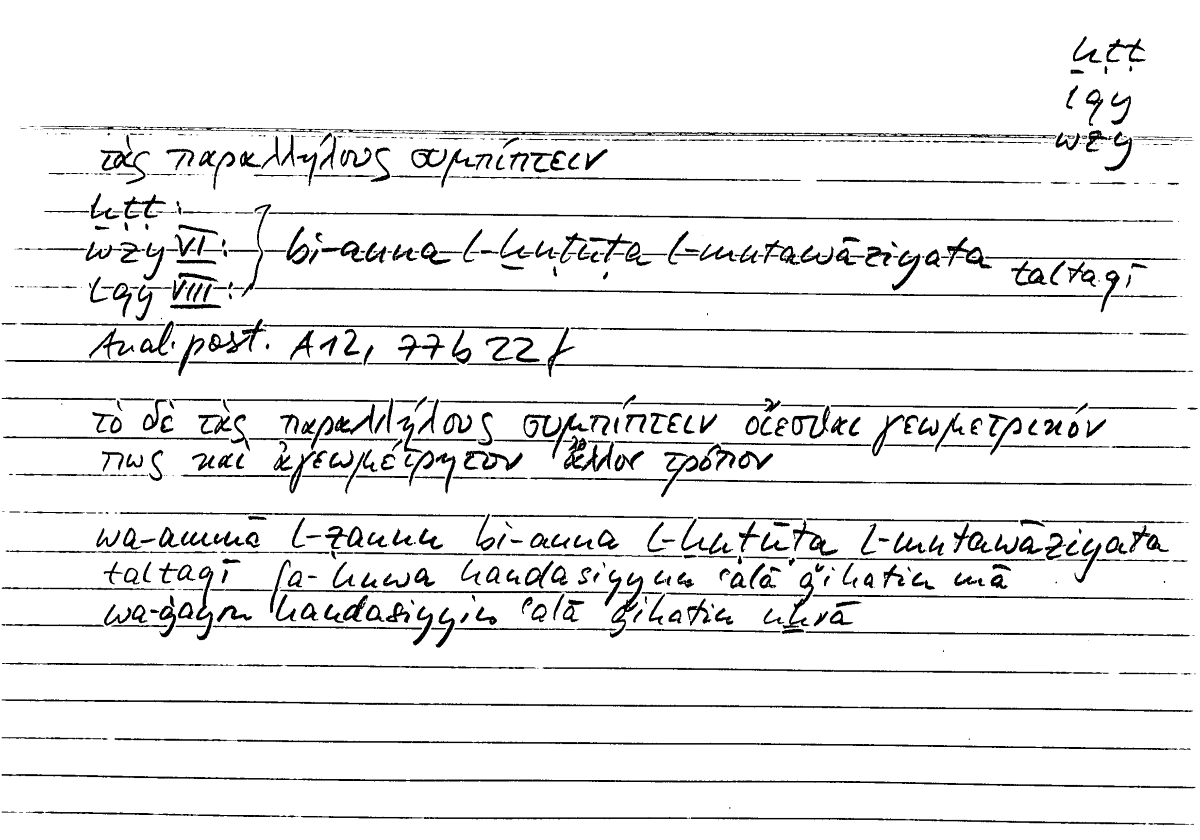 ḫṭṭ
lqy
wzy
τὰς παραλλήλους συμπίπτειν
ḫṭṭ:
wzy VI:
lqy VIII:
bi-anna l-ḫuṭūṭa l-mutawāziyata taltaqī
Anal. post. A12, 77b22f
τὸ δὲ τὰς παραλλήλους συμπίπτειν οἴεσθαι γεωμετρικόν
πως καὶ ἀγεωμέτρητον ἄλλον τρόπον
wa-ammā l-ẓannu bi-anna l-ḫuṭūṭa l-mutawāziyata
taltaqī fa-huwa handasiyyun ʿalā ǧihatin mā
wa-ġayru handasiyyin ʿalā ǧihatin uḫrā